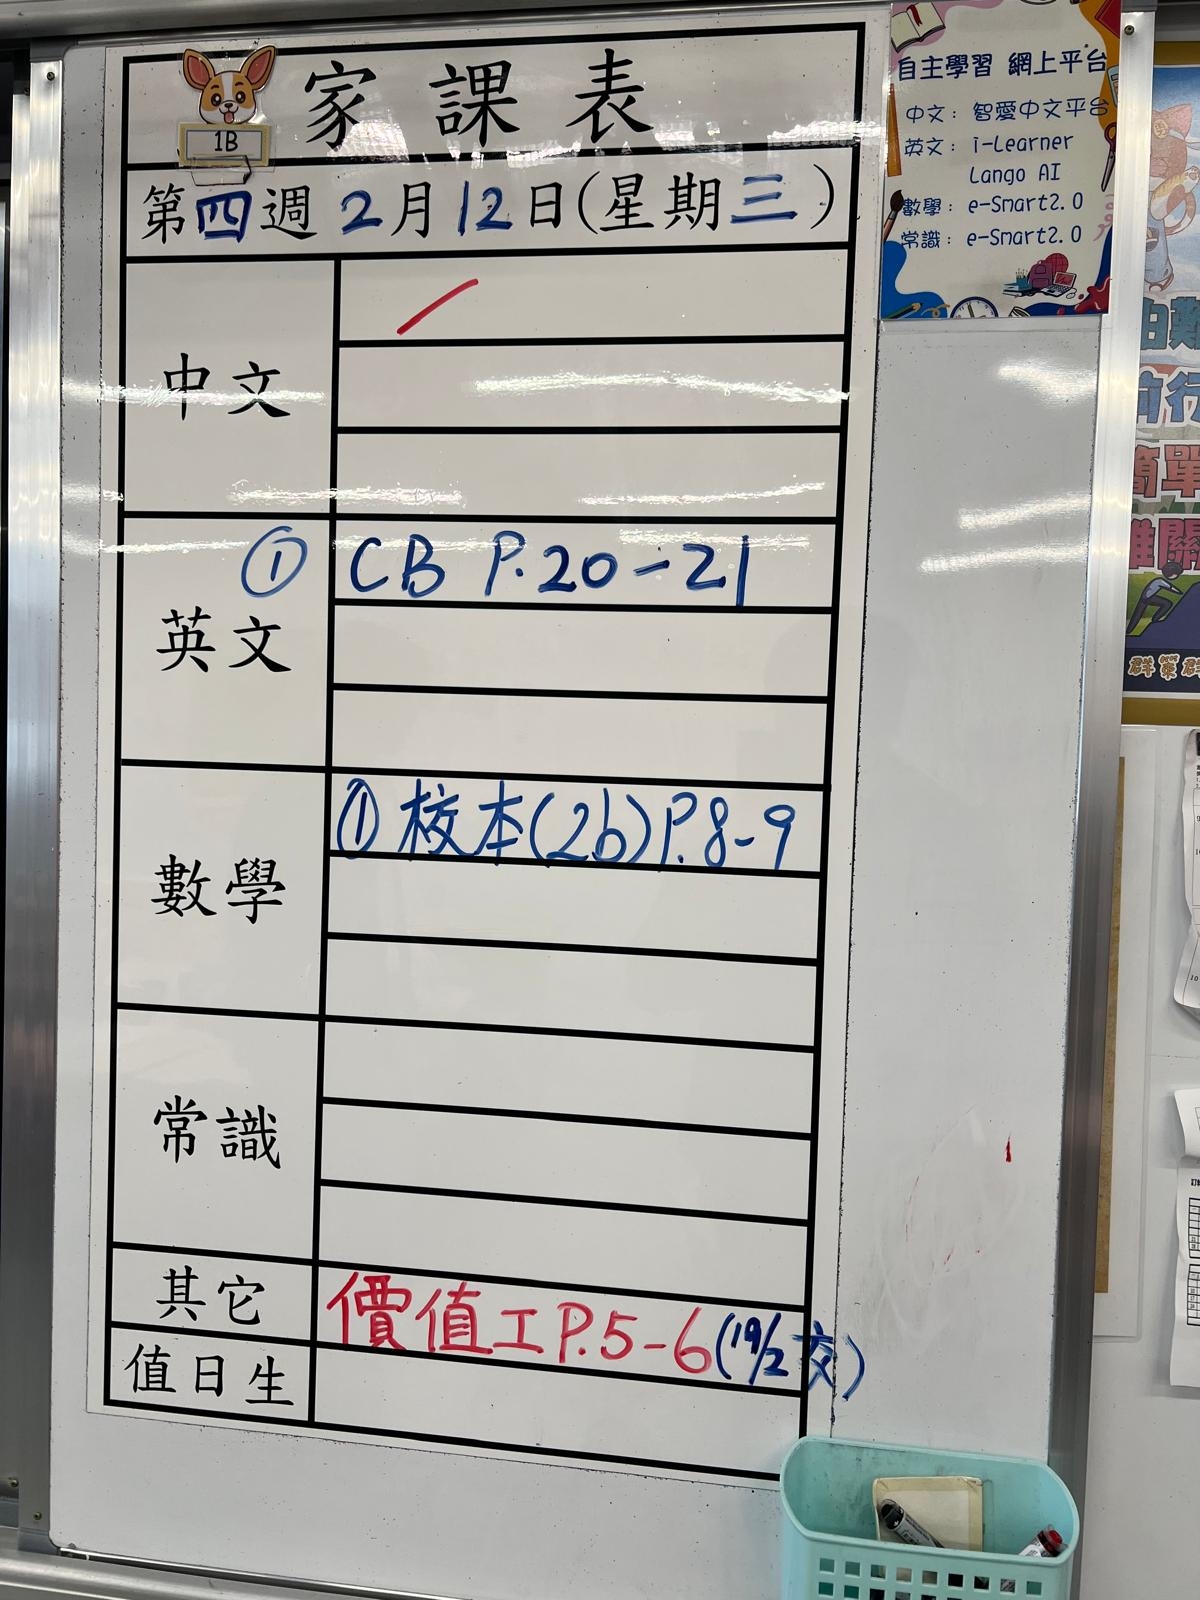 家課表
1B
第四週 2月12日(星期三)
中文
英文 ① CB P.20-21
數學 ① 校本(2b)P.8-9
常識
其它 價值工P.5-6(19/2交)
值日生
自主學習 網上平台
中文: 智愛中文平台
英文: i-Learner
Lango AI
數學: e-Smart2.0
常識: e-Smart2.0
前行
簡單
難關
群策群